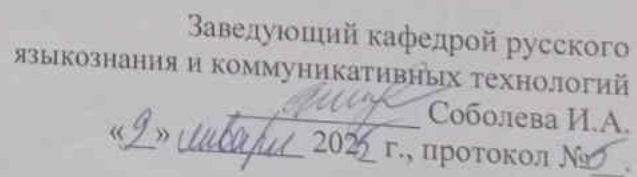 Заведующий кафедрой русского
языкознания и коммуникативных технологий
Соболева И.А.
«9» января 2025 г., протокол №5.